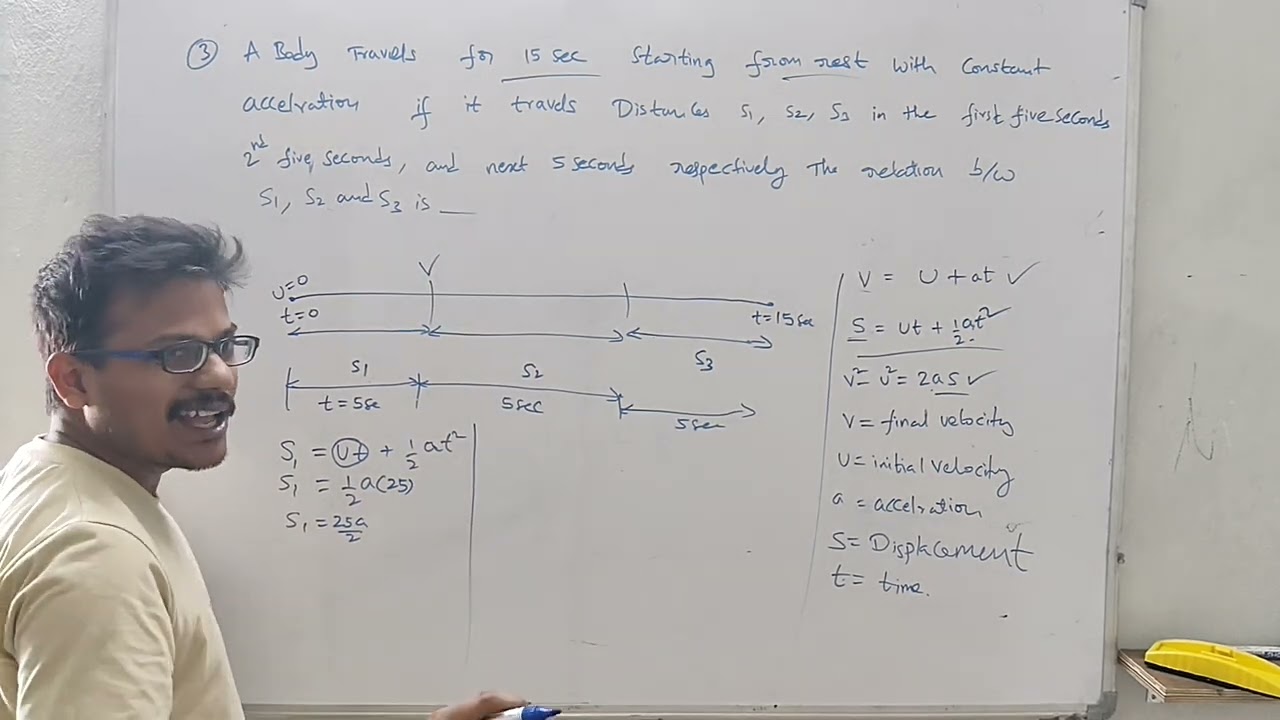 ③ A Body Travels for 15 sec Starting from rest with Constant
accelration if it travels Distances S1, S2, S3 in the first five seconds
2nd five, seconds, and next 5 seconds respectively The relation b/w
S1, S2 and S3 is __
V
U=0
t=0
t=15sec
S1
S2
S3
t=5se
5sec
5sec
S1 = ut + 1/2 at²
S1 = 1/2 a(25)
S1 = 25a/2
V = U + at ✓
S = Ut + 1/2 at² ✓
V² - U² = 2as ✓
V = final velocity
U = initial velocity
a = accelration
S = Displacement
t = time.